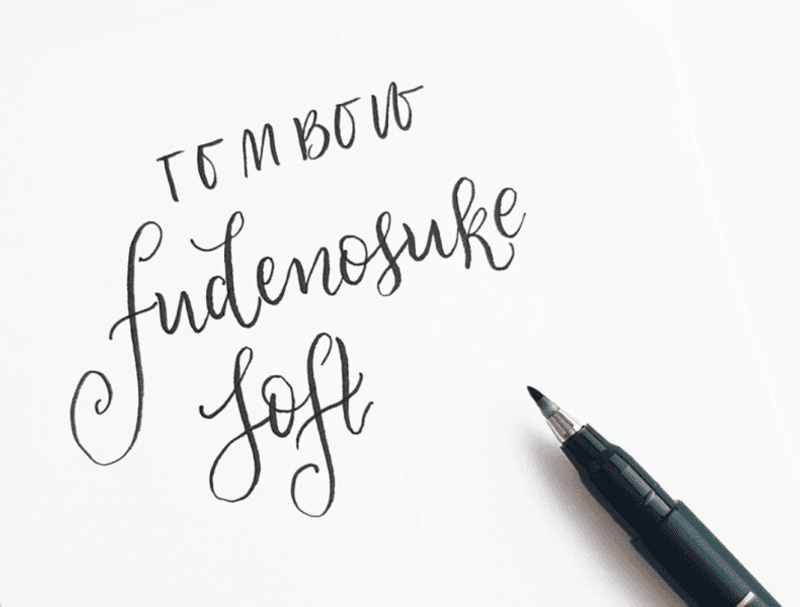 TOMBOW
fudenosuke
soft